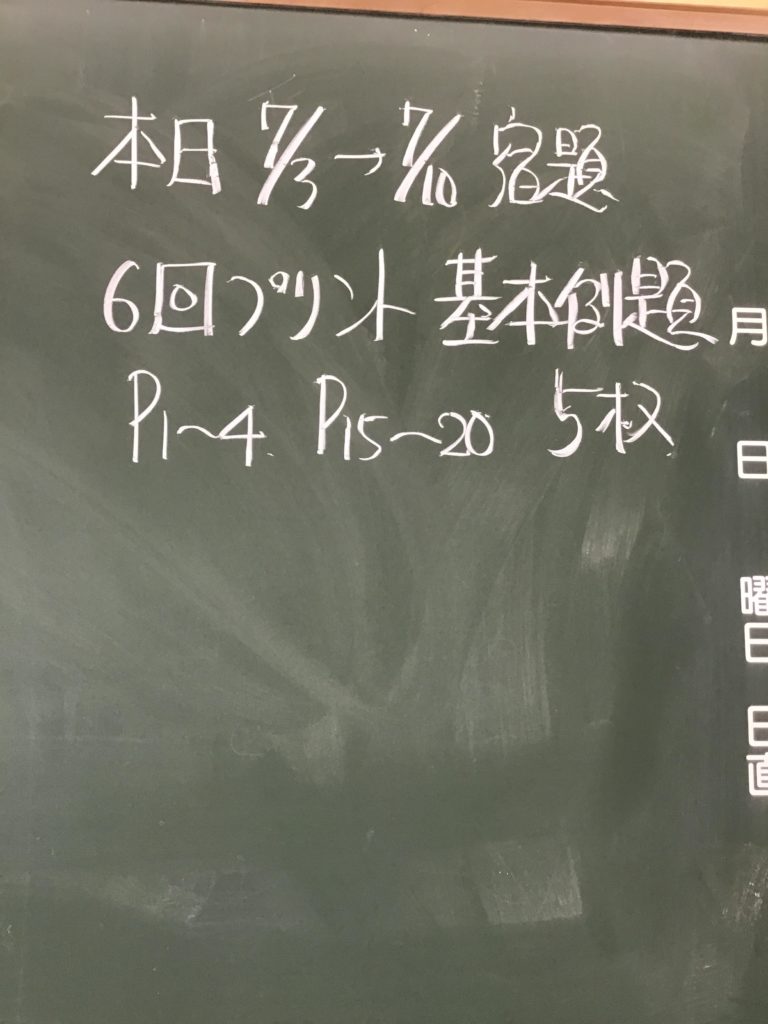 本日 7/3→7/10 宿題
6回プリント 基本例題
P1〜4. P15〜20 5枚
月
日
曜
日
日
直